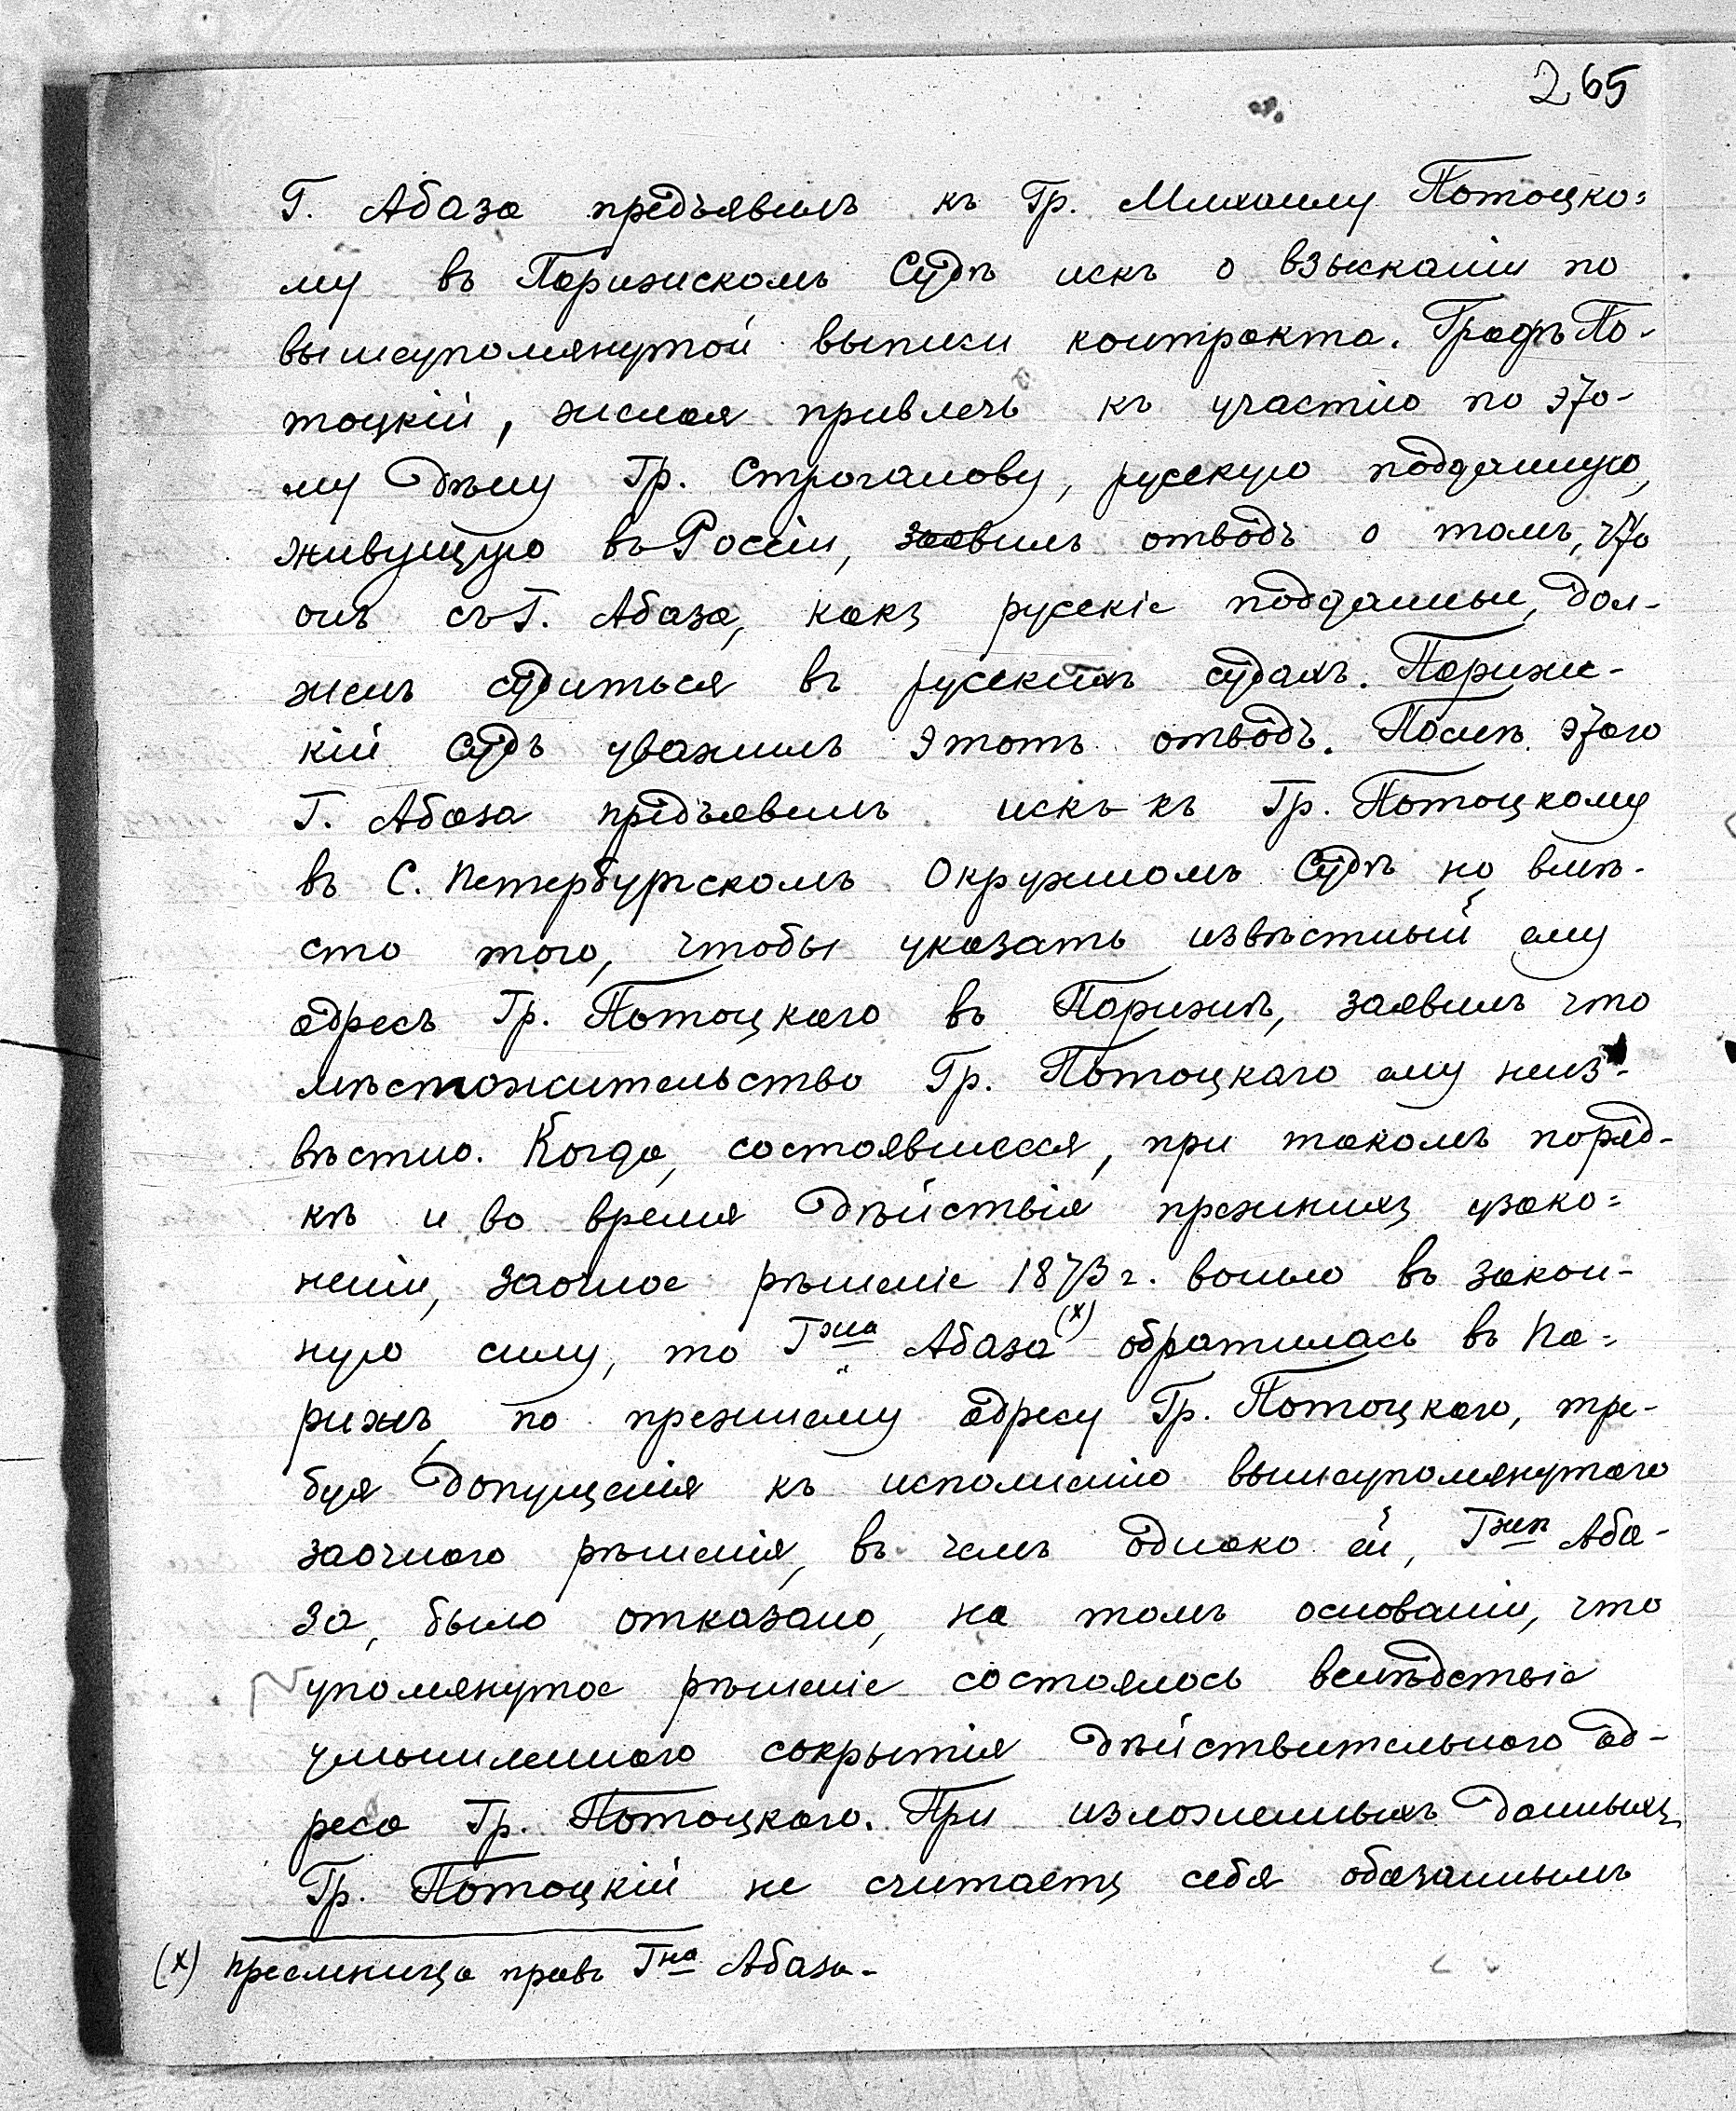 265
Г. Абаза предъявилъ къ Гр. Михаилу Потоцко=
му въ Парижскомъ Судѣ искъ о взысканіи по
вышеупомянутой выписи контракта. Графъ По-
тоцкій, желая привлечь къ участію по это-
му дѣлу Гр. Строганову, русскую подданную,
живущую въ Россіи, заявилъ отводъ о томъ, что
онъ съ Г. Абаза, какъ русскіе подданные, дол-
женъ судиться въ русскихъ судахъ. Парижс-
кій Судъ уважилъ этотъ отводъ. Послѣ этого
Г. Абаза предъявилъ искъ къ Гр. Потоцкому
въ С. Петербургскомъ Окружномъ Судѣ но вмѣ-
сто того, чтобы указать извѣстный ему
адресъ Гр. Потоцкаго въ Парижѣ, заявилъ что
мѣстожительство Гр. Потоцкаго ему неиз-
вѣстно. Когда, состоявшееся, при такомъ поряд-
кѣ и во время дѣйствія прежнихъ узако=
неніи, заочное рѣшеніе 1873 г. вошло въ закон-
ную силу, то Г-жа Абаза (х) обратилась въ Па=
рижъ, по прежнему адресу Гр. Потоцкаго, тре-
буя допущенія къ исполненію вышеупомянутаго
заочнаго рѣшенія, въ чемъ однако ей, Г-жѣ Аба-
за, было отказано, на томъ основаніи, что
упомянутое рѣшеніе состоялось вслѣдствіе
умышленнаго сокрытія дѣйствительнаго ад-
реса Гр. Потоцкаго. При изложенныхъ данныхъ
Гр. Потоцкій не считаетъ себя обязаннымъ
(х) преемница правъ Г-на Абаза.